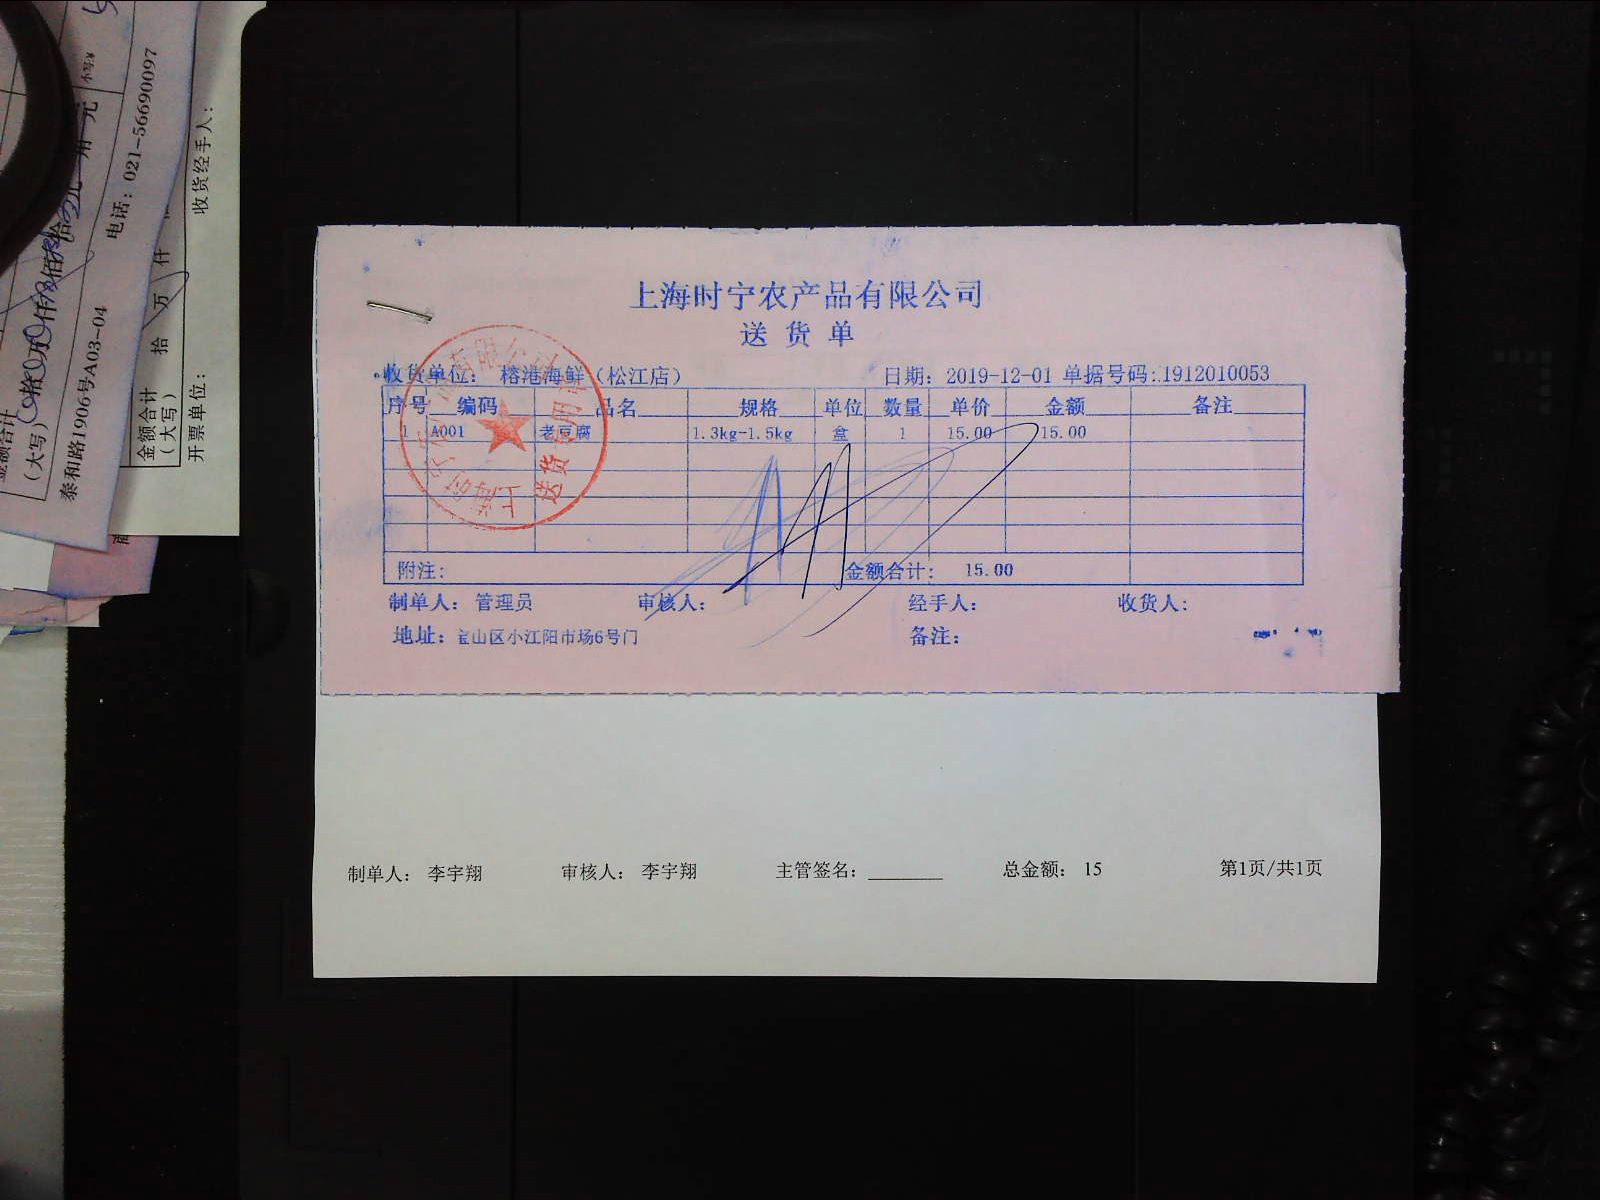 上海时宁农产品有限公司
送货单
收货单位： 榕港海鲜（松江店） 日期：2019-12-01 单据号码：1912010053
序号 编码 品名 规格 单位 数量 单价 金额 备注
1 A001 老豆腐 1.3kg-1.5kg 盒 1 15.00 15.00
附注： 金额合计： 15.00
制单人：管理员 审核人： 经手人： 收货人：
地址：宝山区小江阳市场6号门 备注：
送货专用章
制单人： 李宇翔 审核人： 李宇翔 主管签名： 总金额： 15 第1页/共1页
金额合计
（大写）
拾 万 仟
开票单位：
收货经手人：
（大写） 拾 万 仟 佰 拾 元 角 元
小写¥
泰和路1906号A03-04 电话：021-56690097